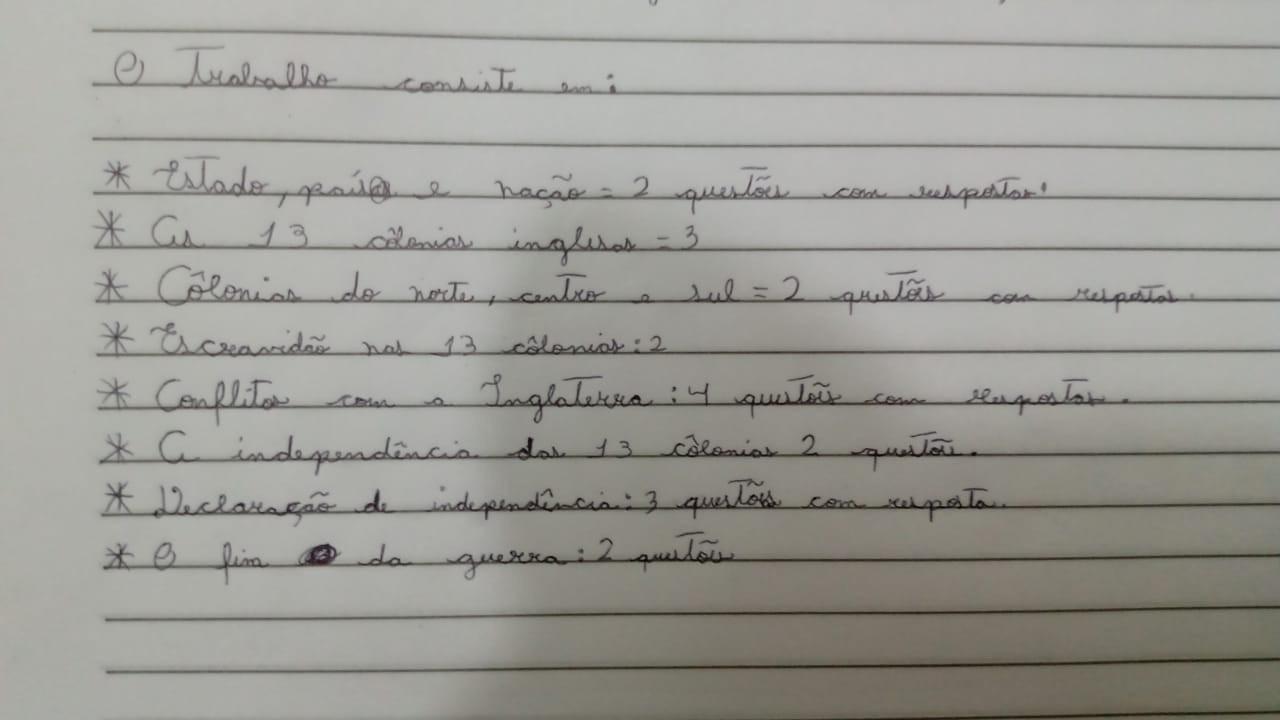 O Trabalho consiste em:
* Estado, país e nação = 2 questões com respostas.
* As 13 côlonias inglesas = 3
* Côlonias do norte, centro e sul = 2 questões com respostas.
* Escravidão nas 13 côlonias: 2
* Conflitos com a Inglaterra: 4 questões com respostas.
* A independência das 13 côlonias 2 questões.
* Declaração de independência: 3 questões com resposta.
* O fim da guerra: 2 questões